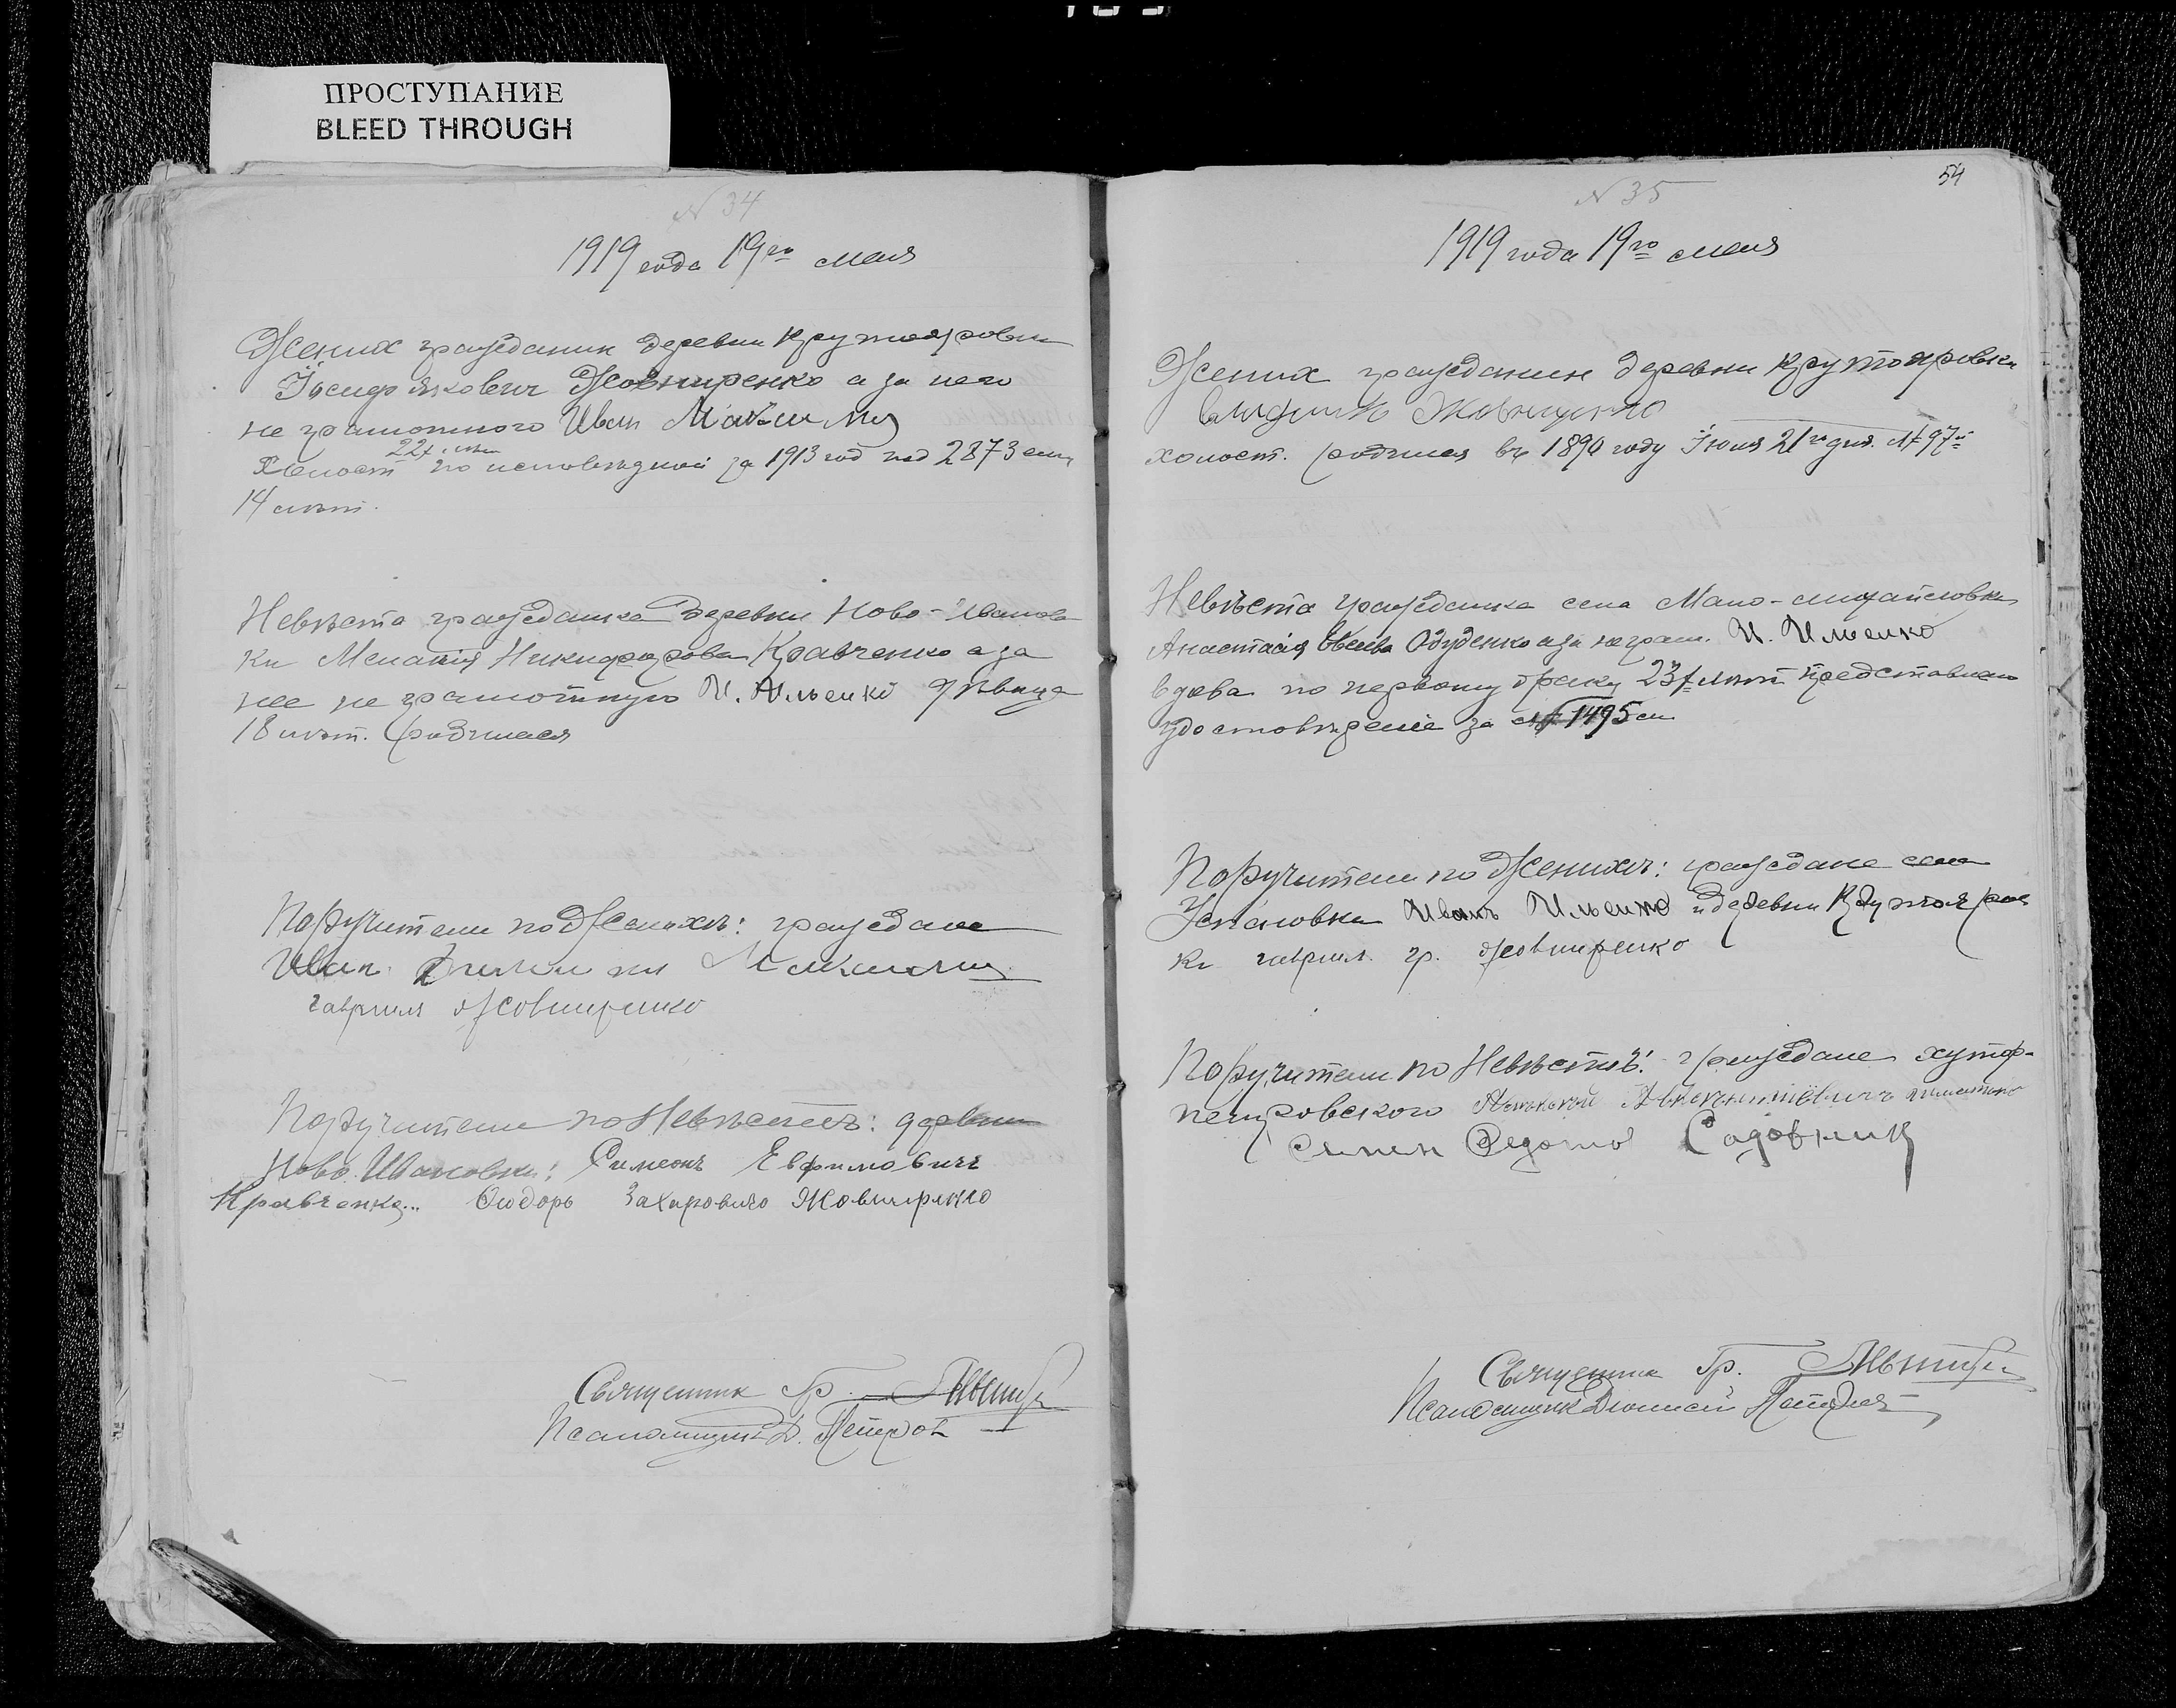 ПРОСТУПАНИЕ
BLEED THROUGH
N 34
1919 года 19го мая
Жених гражданин деревни Крутояровки
Іосиф Якович Жовниренко а за него
не грамотного Иван Макси
22х лет
Холост по исповедной за 1913 год под 2873 сем
14 лѣт.
Невѣста гражданка деревни Ново-Иванов
ки Меланія Никифорова Кравченко а за
нее не грамотную И. Ильенко дѣвица
18 лѣт. родилася
Поручители по Женихѣ: граждане
Иван
гавриил Жовниренко
Поручители по Невѣстѣ: деревни
Ново Ивановки: Симеонъ Евфимовичъ
Кравченко... Ѳиодоръ Захаровичъ Жовниренко
Священник Гр.
Псаломщик Д. Петров
54
N 35
1919 года 19го мая
Жених гражданин деревни Крутояровки
холост. родился въ 1890 году Іюля 21го дня. № 97й
Невѣста гражданка села Мало-михайловки
Анастасія а за неграм. И. Ильенко
вдова по первому браку 23х лѣт представлено
за № 1495 см
Поручители по Женихѣ: граждане села
Успеновки Иванъ Ильенко и деревни Крутояров
ки гавриил. гр. Жовниренко
Поручители по Невѣстѣ: граждане хутор-
петровского
Семен Федотов Садовник
Священник Гр.
Псаломщик Дионисій Петров